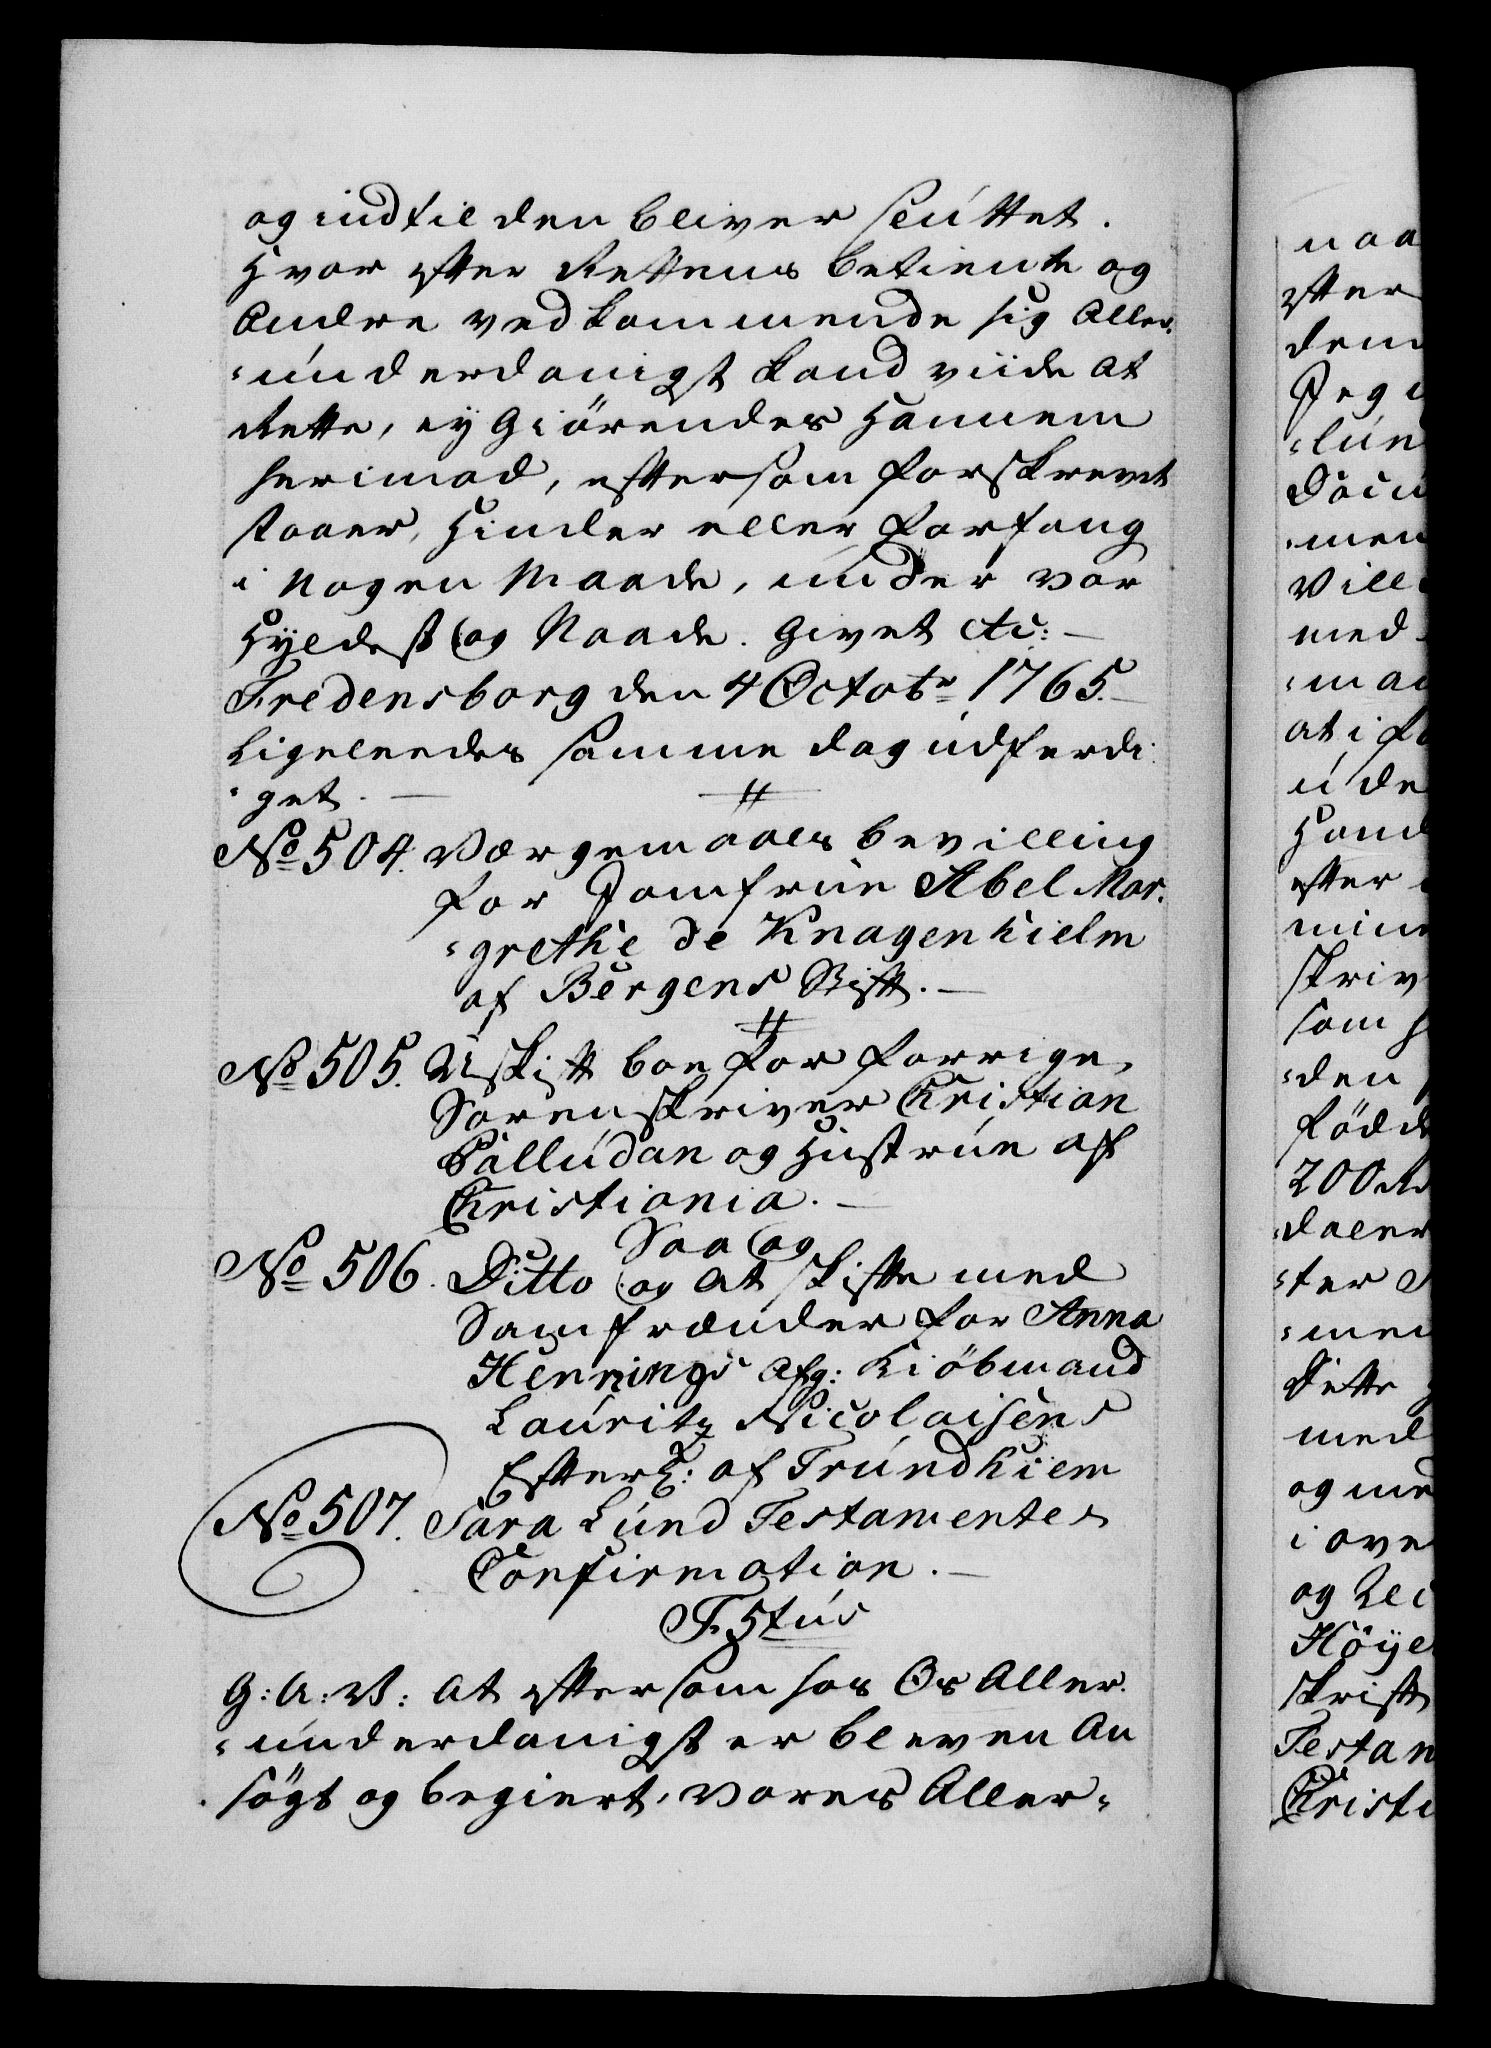 og indtil den bliver sluttet.
Hvor efter Rettens betiente og
Andre vedkommende sig Aller-
-underdanigst kand viide at
Rette, ey Giörendes Hannem
herimod, eftersom forskrevet
staaer, Hinder eller forfang
i Nogen Maade, under vor
Hyldest og Naade. Givet etc: -
Fredensborg den 4 Octobr 1765. -
Ligeleedes samme dag udferdi-
-get. -
No 504. Værgemaals bevilling
for Jomfrue Abel Mar-
-grethe de Knagenhielm
af Bergens Stift. -
No 505. Uskift boe for forrige
Sorenskriver Christian
Palludan og Hustrue af
Christiania. -
Saa og
No 506. Ditto og at skifte med
Samfrænder for Anna
Hennings Afg: Kiöbmand
Lauritz Nicolaisens
Efterl: af Trundhiem
No 507. Sara Lund Testamentes
Confirmation. -
F. 5tus
G: A: V: At eftersom hos Os Aller-
-underdanigst er bleven An
sögt og begiert, vores Aller-
naa
efter
den
Jeg
-lun
Docu
-men
Vill
med
-man
at i fo
u de
Hand
efter
min
skriv
som
-den
födde
200 R
daler
-ter
-men
Dette
med
og me
i ove
og
Höye
skrift
Testam
Christi